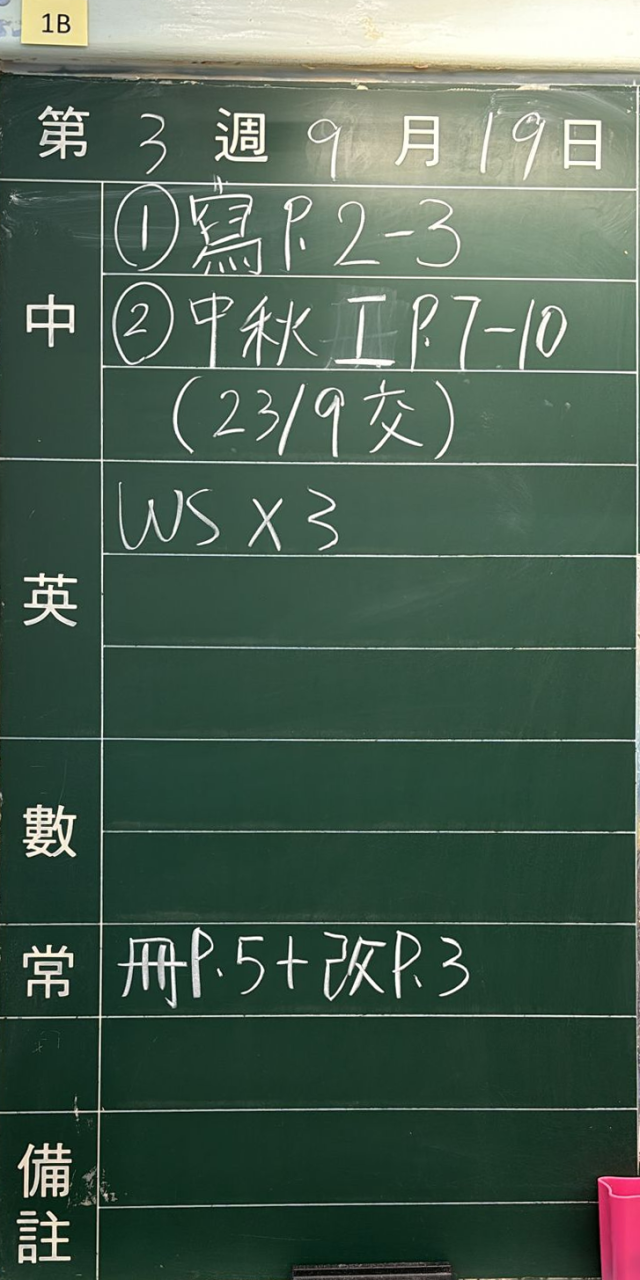 1B
第 3 週 9 月 19 日
中
①寫P.2-3
②中秋工P.7-10
(23/9交)
英
WS X 3
數
常
冊P.5+改P.3
備註